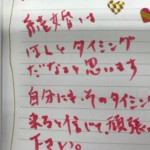 結婚は
ほんとタイミング
だなぁと思います
自分にも、そのタイミン
来ると信じて、頑張っ
下さい。